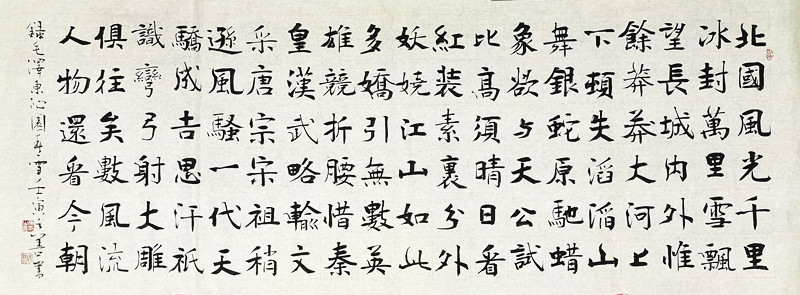 北國風光千里
冰封萬里雪飄
望長城内外惟
餘莽莽大河上
下頓失滔滔山
舞銀蛇原馳蜡
象欲与天公試
比高須晴日看
紅装素裹分外
妖嬈江山如此
多嬌引無數英
雄競折腰惜秦
皇漢武略輸文
采唐宗宋祖稍
遜風騷一代天
驕成吉思汗祇
識彎弓射大雕
俱往矣數風流
人物還看今朝
錄毛澤東沁园春雪壬寅